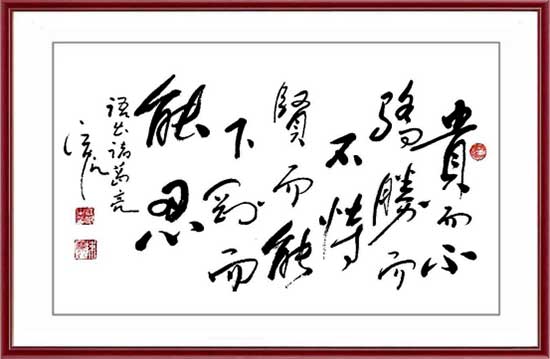 貴而不
驕勝而
不恃
賢而能
下剛而
能忍
語出諸葛亮